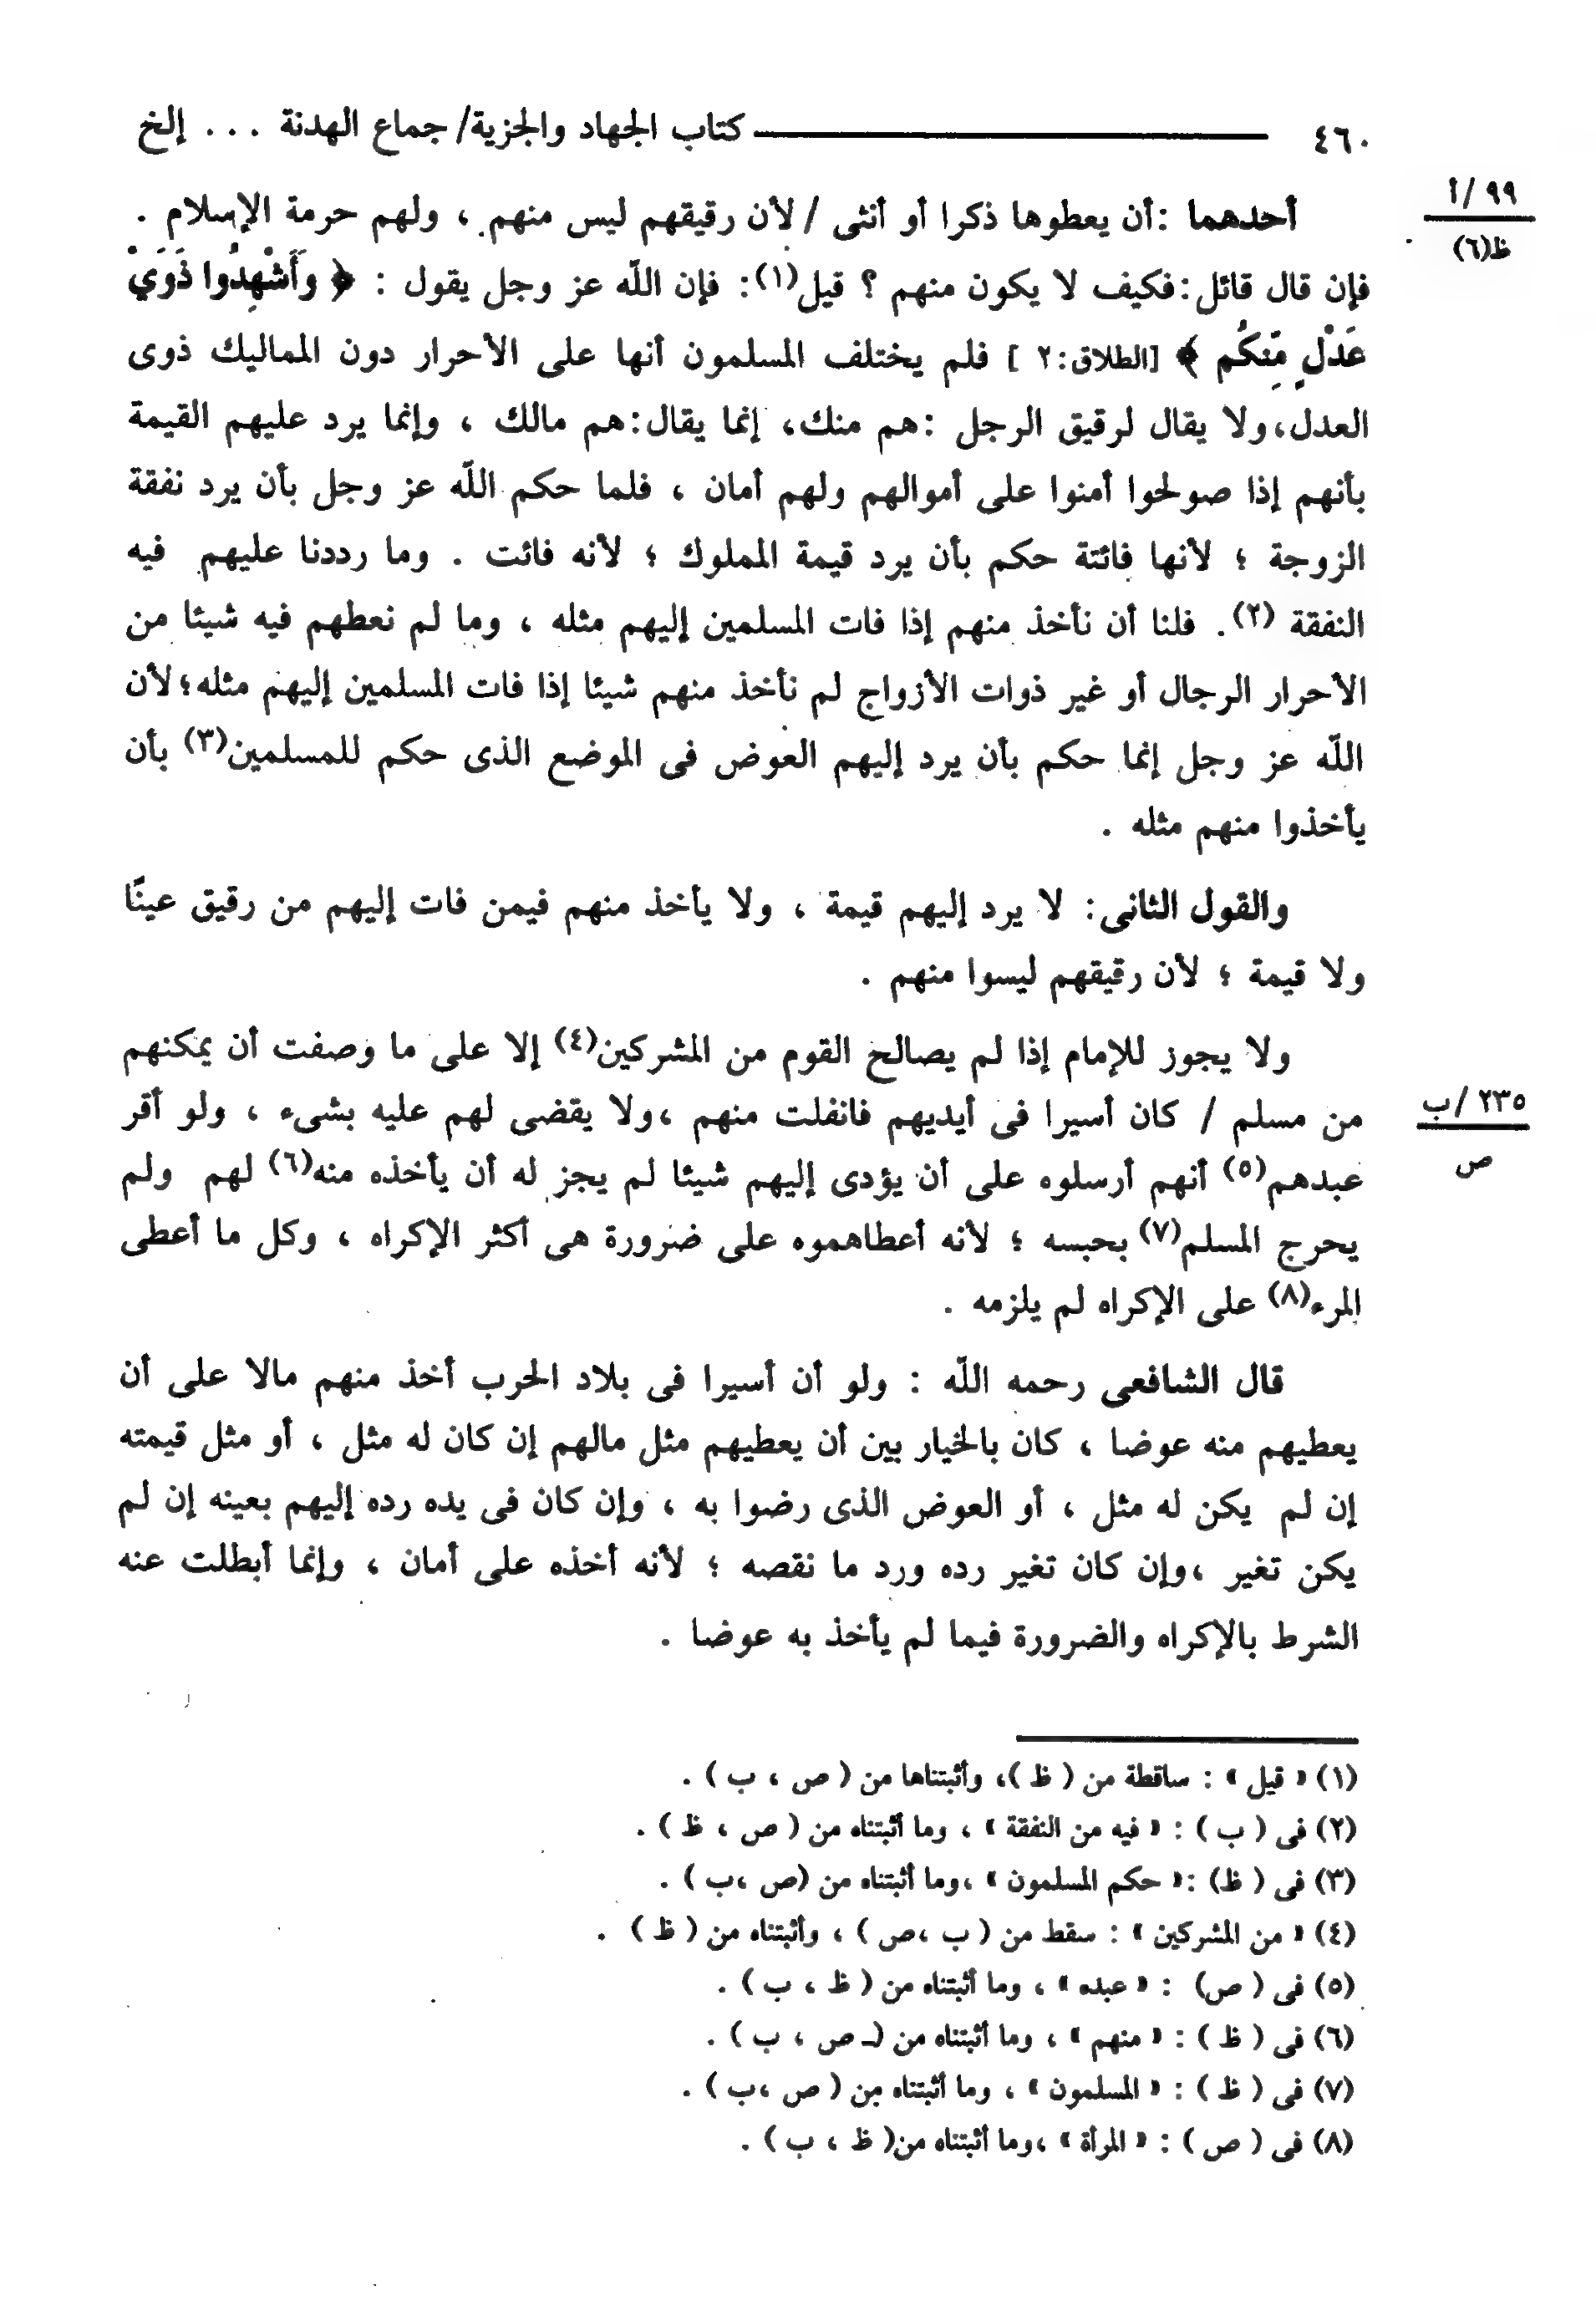 ٤٦٠ كتاب الجهاد والجزية/ جماع الهدنة ... إلخ
أحدهما :أن يعطوها ذكرا أو أنثى / لأن رقيقهم ليس منهم ، ولهم حرمة الإسلام .
٩٩ /أ
ظ(٦)
فإن قال قائل:فكيف لا يكون منهم ؟ قيل(١): فإن اللّه عز وجل يقول : ﴿ وَأَشْهِدُوا ذَوَيْ
عَدْلٍ مِّنكُم ﴾ [الطلاق:٢ ] فلم يختلف المسلمون أنها على الأحرار دون المماليك ذوى
العدل،ولا يقال لرقيق الرجل :هم منك، إنما يقال:هم مالك ، وإنما يرد عليهم القيمة
بأنهم إذا صولحوا أمنوا على أموالهم ولهم أمان ، فلما حكم اللّه عز وجل بأن يرد نفقة
الزوجة ؛ لأنها فائتة حكم بأن يرد قيمة المملوك ؛ لأنه فائت . وما رددنا عليهم فيه
النفقة (٢). فلنا أن نأخذ منهم إذا فات المسلمين إليهم مثله ، وما لم نعطهم فيه شيئا من
الأحرار الرجال أو غير ذوات الأزواج لم نأخذ منهم شيئا إذا فات المسلمين إليهم مثله؛لأن
اللّه عز وجل إنما حكم بأن يرد إليهم العوض فى الموضع الذى حكم للمسلمين(٣) بأن
يأخذوا منهم مثله .
والقول الثانى: لا يرد إليهم قيمة ، ولا يأخذ منهم فيمن فات إليهم من رقيق عينًا
ولا قيمة ؛ لأن رقيقهم ليسوا منهم .
ولا يجوز للإمام إذا لم يصالح القوم من المشركين(٤) إلا على ما وصفت أن يمكنهم
من مسلم / كان أسيرا فى أيديهم فانفلت منهم ،ولا يقضى لهم عليه بشىء ، ولو أقر
٢٣٥ /ب
ص
عبدهم(٥) أنهم أرسلوه على أن يؤدى إليهم شيئا لم يجز له أن يأخذه منه(٦) لهم ولم
يحرج المسلم(٧) بحبسه ؛ لأنه أعطاهموه على ضرورة هى أكثر الإكراه ، وكل ما أعطى
المرء(٨) على الإكراه لم يلزمه .
قال الشافعى رحمه اللّه : ولو أن أسيرا فى بلاد الحرب أخذ منهم مالا على أن
يعطيهم منه عوضا ، كان بالخيار بين أن يعطيهم مثل مالهم إن كان له مثل ، أو مثل قيمته
إن لم يكن له مثل ، أو العوض الذى رضوا به ، وإن كان فى يده رده إليهم بعينه إن لم
يكن تغير ،وإن كان تغير رده ورد ما نقصه ؛ لأنه أخذه على أمان ، وإنما أبطلت عنه
الشرط بالإكراه والضرورة فيما لم يأخذ به عوضا .
(١) « قيل » : ساقطة من ( ظ )، وأثبتناها من ( ص ، ب ) .
(٢) فى ( ب ) : « فيه من النفقة » ، وما أثبتناه من ( ص ، ظ ) .
(٣) فى ( ظ) :« حكم المسلمون » ،وما أثبتناه من (ص ،ب ) .
(٤) « من المشركين » : سقط من ( ب ،ص ) ، وأثبتناه من ( ظ ) .
(٥) فى ( ص) : « عبده » ، وما أثبتناه من ( ظ ، ب ) .
(٦) فى ( ظ ) : « منهم » ، وما أثبتناه من ( ص ، ب ) .
(٧) فى ( ظ ) : « المسلمون » ، وما أثبتناه من ( ص ،ب ) .
(٨) فى ( ص ) : « المرأة » ،وما أثبتناه من( ظ ، ب ) .